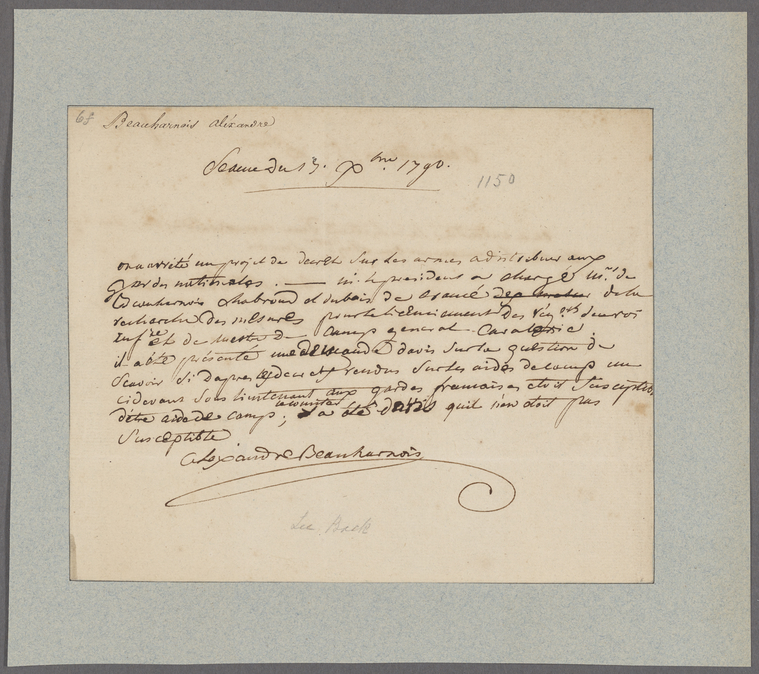 68 Beauharnois aléxandre
Seance du 13. Xbre 1790.
1150
on a arrêté un projet de decret sur les armes a distribuer aux
gardes nationales. — m. le president a chargé Mr. de
Beauharnois Chabroud et dubois de crancé de la
recherche des mesures pour le licenciement des de
et de camp general. Cavalerie.
il a été présenté une demande d'avis sur la question de
scavoir si dapres les decrets rendus sur les aides de camp un
cidevant sous lieutenant aux gardes francaises etoit susceptible
d'être aide de camp; a été d'avis quil n'en etoit pas
susceptible
Alexandre Beauharnois
See Back